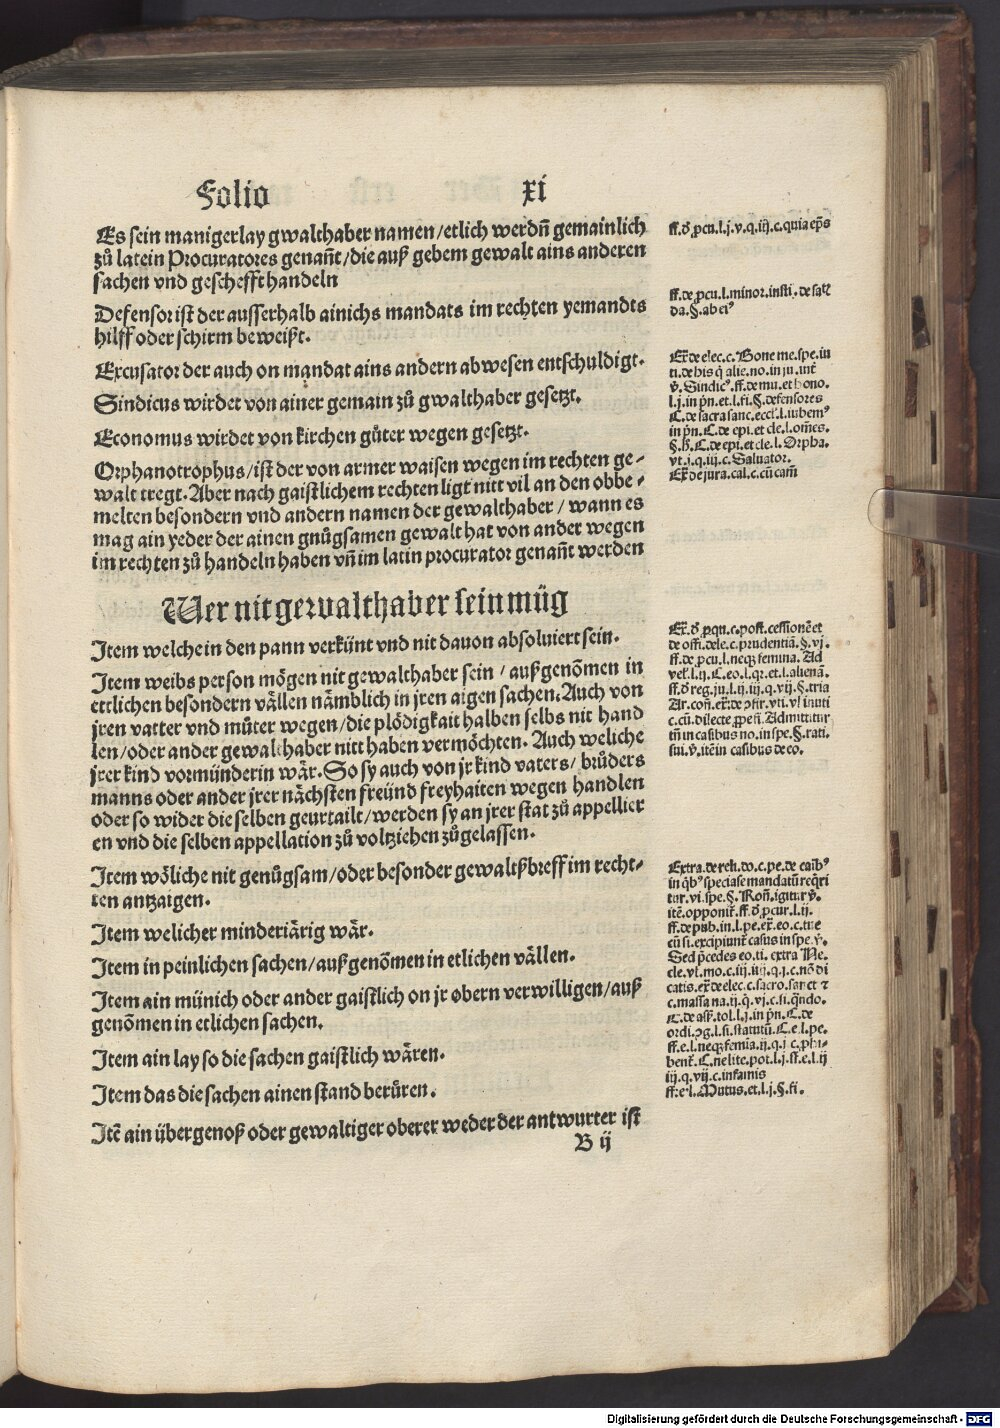 Folio xi
Es sein manigerlay gwalthaber namen/etlich werdn̄ gemainlich
zů latein Procuratores genañt/die auß gebem gewalt ains anderen
sachen vnd geschefft handeln
Defensor ist der ausserhalb ainichs mandats im rechten yemandts
hilff oder schirm beweißt.
Excusator der auch on mandat ains andern abwesen entschuldigt.
Sindicus wirdet von ainer gemain zů gwalthaber gesetzt.
Economus wirdet von kirchen gůter wegen gesetzt.
Orphanotrophus/ist der von armer waisen wegen im rechten ge-
walt tregt. Aber nach gaistlichem rechten ligt nitt vil an den obbe-
melten besondern vnd andern namen der gewalthaber/wann es
mag ain yeder der ainen gnůgsamen gewalt hat von ander wegen
im rechten zů handeln haben vn̄ im latin procurator genañt werden
Wer nit gewalthaber sein müg
Item welche in den pann verkünt vnd nit dauon absoluiert sein.
Item weibs person mögen nit gewalthaber sein/außgenōmen in
ettlichen besondern vällen nämblich in jren aigen sachen. Auch von
jren vatter vnd můter wegen/die plödigkait halben selbs nit hand
len/oder ander gewalthaber nitt haben vermöchten. Auch weliche
jrer kind vormünderin wär. So sy auch von jr kind vaters/brůders
manns oder ander jrer nächsten freünd freyhaiten wegen handlen
oder so wider die selben geurtailt/werden sy an jrer stat zů appellier
en vnd die selben appellation zů voltziehen zůgelassen.
Item wöliche nit genůgsam/oder besonder gewaltßbreff im recht-
ten antzaigen.
Item welicher minderiärig wär.
Item in peinlichen sachen/außgenōmen in etlichen vällen.
Item ain münich oder ander gaistlich on jr obern verwilligen/auß
genōmen in etlichen sachen.
Item ain lay so die sachen gaistlich wären.
Item das die sachen ainen stand berüren.
Itē ain übergenoß oder gewaltiger oberer weder der antwurter ist
B ij
ff. de ꝓcu.l.minor.insti.de sat
da.§.ab ei
de elec.c. Bone me.spe.iu
ti.de his q̄ alie.no.in ju.
Sindic⁹.ff.de mu.et hono.
l.j.in pn̄.et.l.fi.§.defensores
C.de sacrasanc.eccl.l.iubem⁹
in pn̄.C.de epi.et cle.l.om̄es.
C.de epi.et cle.l. Orpha.
vt.j.q.iij.c. Saluator.
de jura.cal.c.cū cam̄
c.post.cessionē et
de offi.dele.c.prudentiā.§.vj.
ff.de ꝓcu.l.neq̨ femina. Ad
C.eo.l.qr.et.l.alienā.
reg.ju.l.ij.iij.q.vij.§.tria
c.cū.dilecte. Admittitur
tn̄ in casibus no.in spe.§.rati.
itē in casibus de eo.
Extra.de
in speciale mandatū reqri
tur.vi.spe.§. igitur
itē.opponit.ff. l.ij.
ff.de pub.in.l.pe. eo.c.tue
cū si.excipiunt casus in spe.
Sed p̄cedes eo.ti. extra Ne.
cle.vl.mo.c.iij. q.j.c.nō di
catis. de elec.c.sacro.sanct
c.massa na.ij.q.vj.c.si.
C.de in pn̄.C.de
l.si.statutū.C.e.l.pe.
ff.e.l.neq̨
C.ne lite.pot.l.j.ff.e.l.ij
iij.q.vij.c.infamis
ff.e.l. Mutus.et.l.j.§.fi.
Digitalisierung gefördert durch die Deutsche Forschungsgemeinschaft - DFG